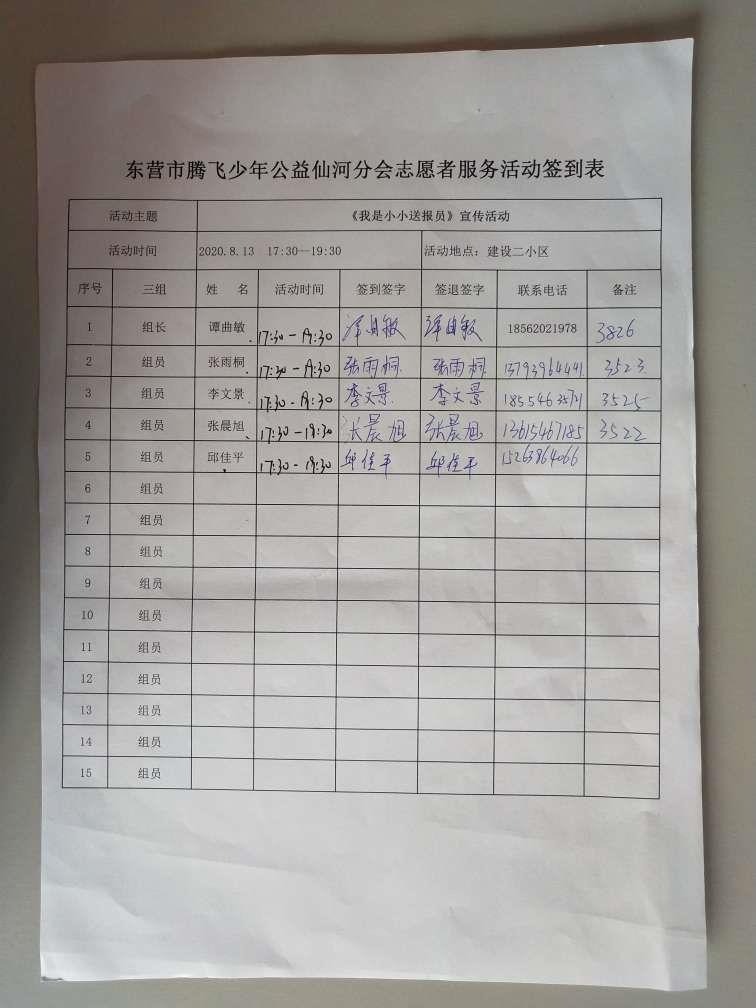 东营市腾飞少年公益仙河分会志愿者服务活动签到表
活动主题 《我是小小送报员》宣传活动
活动时间 2020.8.13 17:30—19:30 活动地点：建设二小区
序号 三组 姓 名 活动时间 签到签字 签退签字 联系电话 备注
1 组长 谭曲敏 17:30-19:30 谭曲敏 谭曲敏 18562021978 3826
2 组员 张雨桐 17:30-19:30 张雨桐 张雨桐 13793964441 3523
3 组员 李文景 17:30-19:30 李文景 李文景 18554635721 3525
4 组员 张晨旭 17:30-19:30 张晨旭 张晨旭 13615467185 3522
5 组员 邱佳平 17:30-19:30 邱佳平 邱佳平 15263864066
6 组员
7 组员
8 组员
9 组员
10 组员
11 组员
12 组员
13 组员
14 组员
15 组员